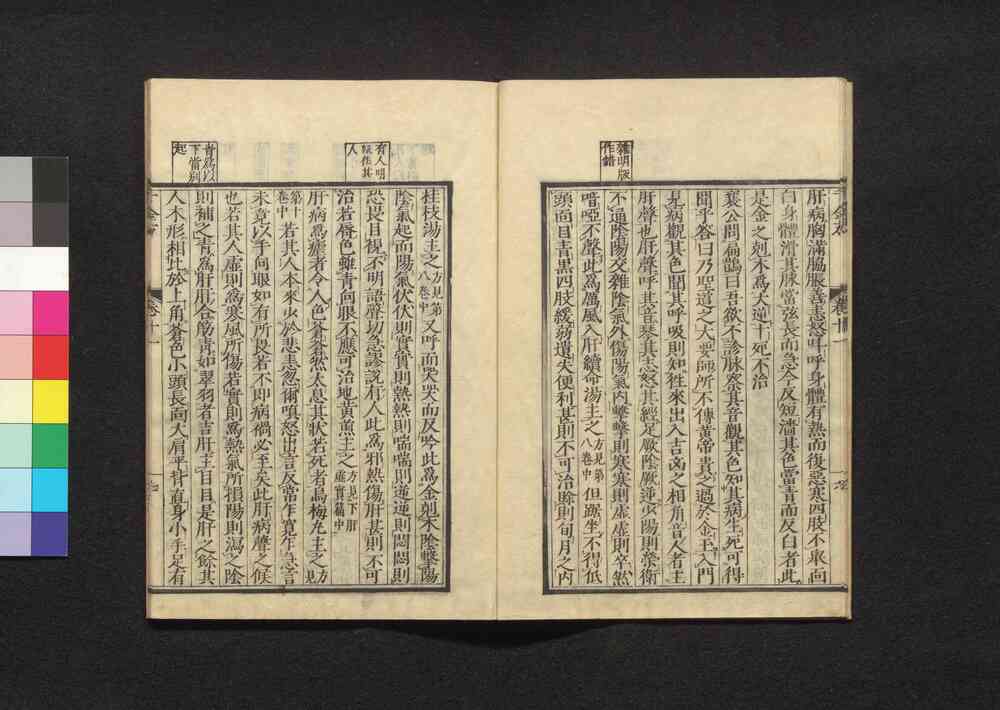 雜明版
作錯
肝病胸滿脇脹善恚怒叫呼身體有熱而復惡寒四肢不舉面
白身體滑其脉當弦長而急今反短濇其色當青而反白者此
是金之剋木爲大逆十死不治
襄公問扁鵲曰吾欲不診脉察其音觀其色知其病生死可得
聞乎答曰乃聖道之大要師所不傳黃帝貴之過於金玉入門
見病觀其色聞其呼吸則知往來出入吉凶之相角音人者主
肝聲也肝聲呼其音琴其志怒其經足厥陰厥逆少陽則榮衛
不通陰陽交雜陰氣外傷陽氣內擊擊則寒寒則虛虛則卒然
喑啞不聲此爲厲風入肝續命湯主之方見第八卷中但踞坐不得低
頭面目青黑四肢緩弱遺失便利甚則不可治賒則旬月之內
有人明
版作其
人
青爲以
下當別
起
桂枝湯主之方見第八卷中又呼而哭哭而反吟此爲金剋木陰擊陽
陰氣起而陽氣伏伏則實實則熱熱則喘喘則逆逆則悶悶則
恐畏目視不明語聲切急謬說有人此爲邪熱傷肝甚則不可
治若脣色雖青向眼不應可治地黃煎主之方見下肝虛實篇中
肝病爲瘧者令人色蒼蒼然太息其狀若死者烏梅丸主之方見
第十卷中若其人本來少於悲恚忽爾嗔怒出言反常乍寬乍急言
未竟以手向眼如有所畏若不即病禍必至矣此肝病聲之候
也若其人虛則爲寒風所傷若實則爲熱氣所損陽則瀉之陰
則補之青爲肝肝合筋青如翠羽者吉肝主目目是肝之餘其
人木形相比於上角蒼色小頭長面大肩平背直身小手足有